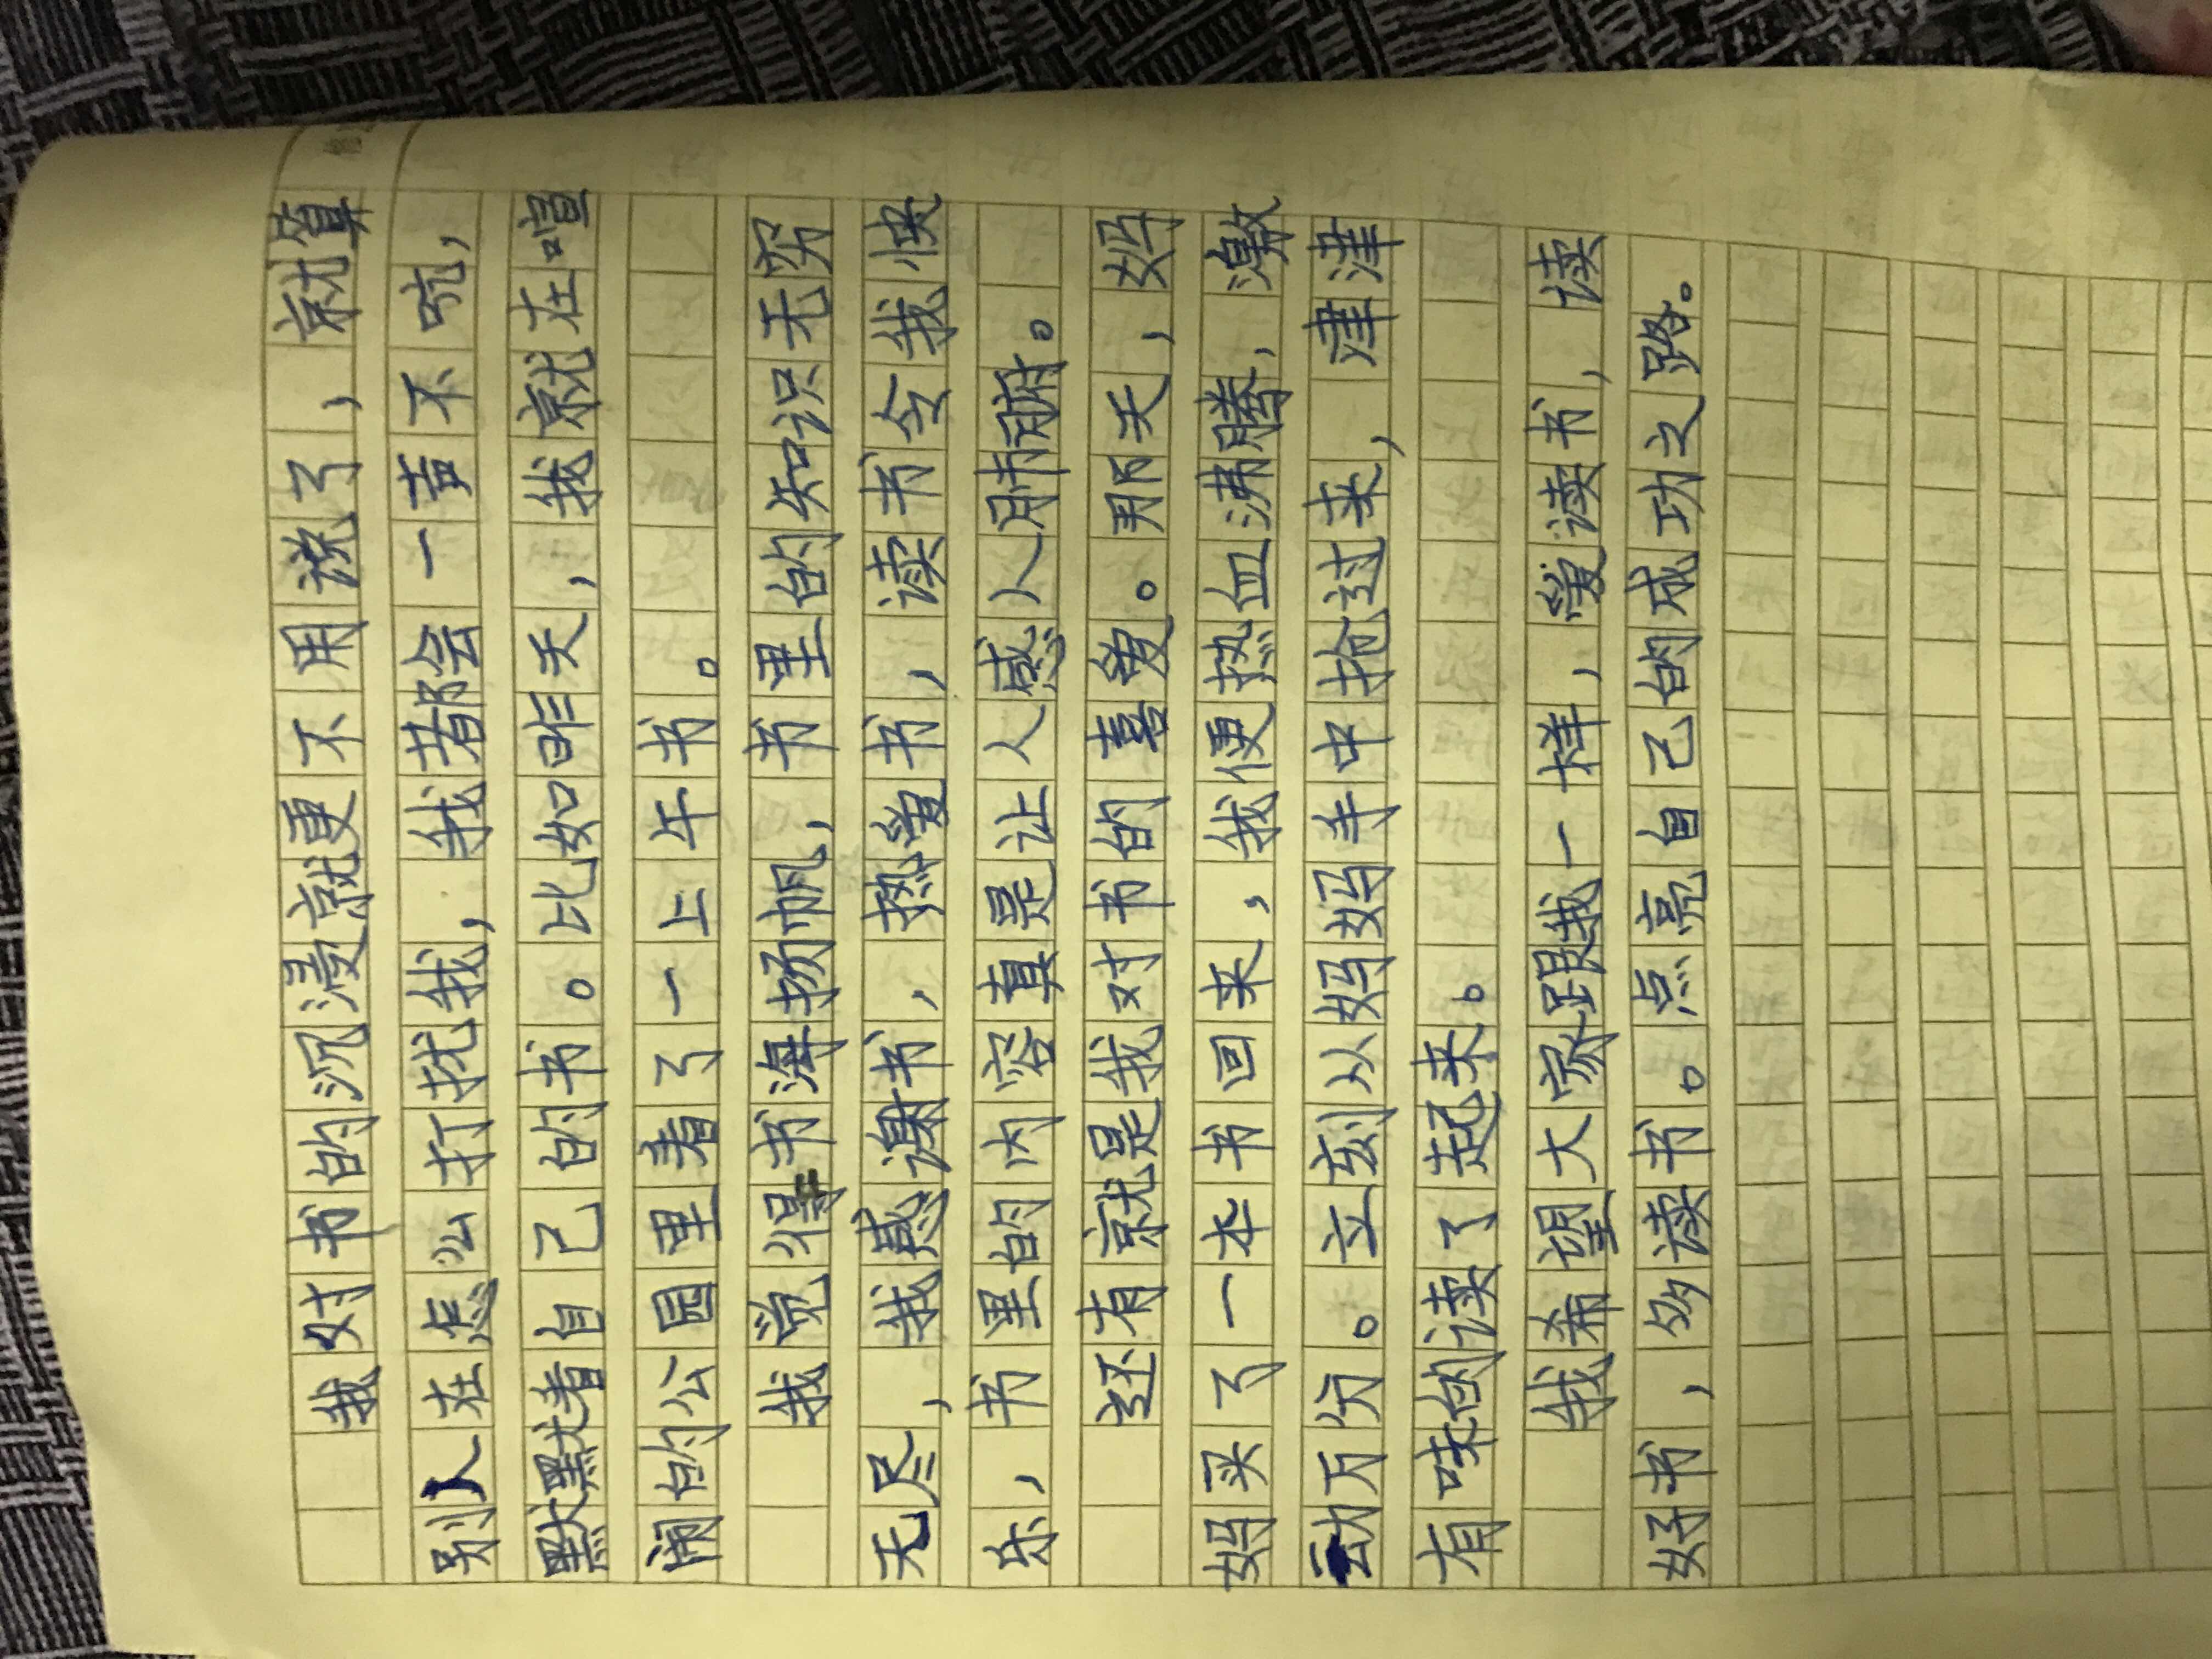 我对书的沉浸就更不用说了，就算
别人在怎么打扰我，我都会一声不吭，
默默看自己的书。比如昨天，我就在喧
闹的公园里看了一上午书。
我觉得书海扬帆，书里的知识无穷
无尽，我感谢书，热爱书，读书令我快
乐，书里的内容真是让人感人肺腑。
还有就是我对书的喜爱。那天，妈
妈买了一本书回来，我便热血沸腾，激
动万分。立刻从妈妈手中抢过来，津津
有味的读了起来。
我希望大家跟我一样，爱读书，读
好书，多读书。点亮自己的成功之路。